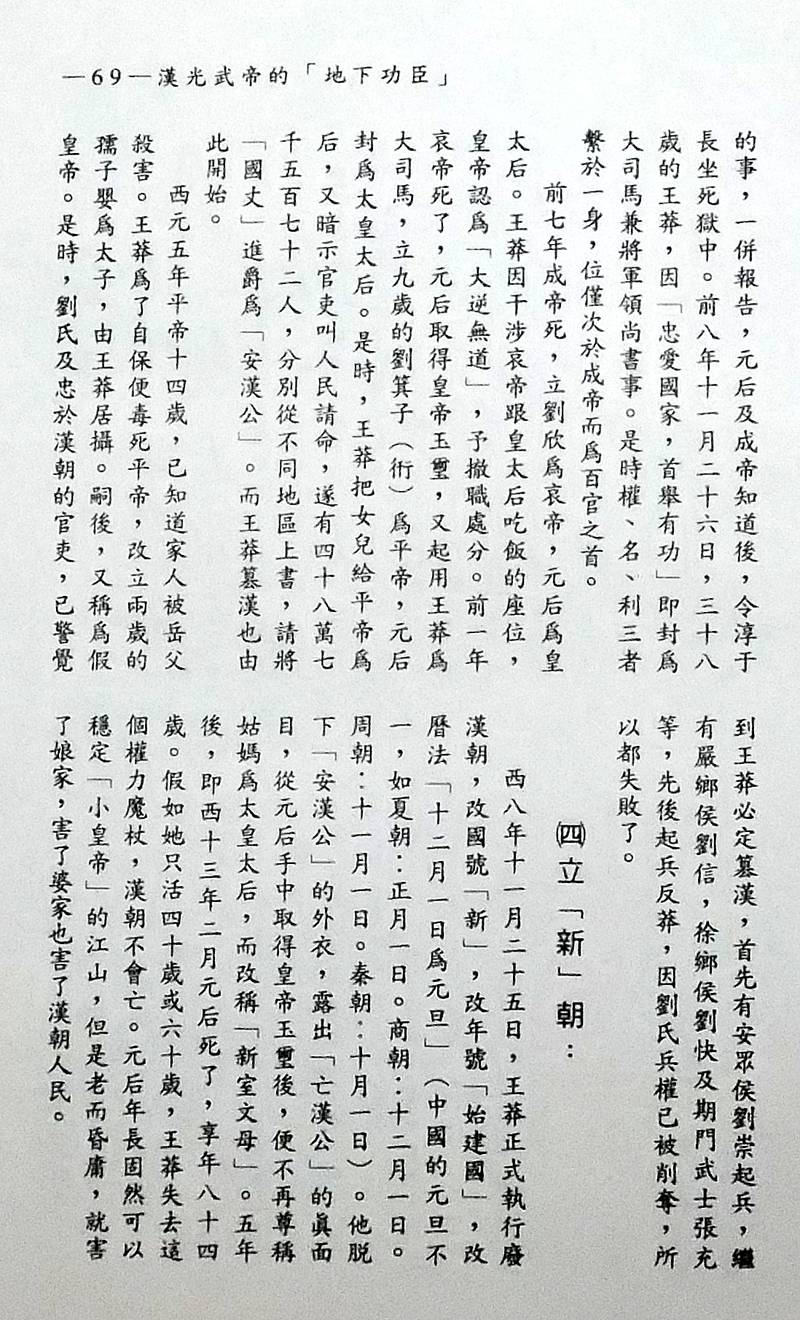 —69—漢光武帝的「地下功臣」
的事，一併報告，元后及成帝知道後，令淳于
長坐死獄中。前八年十一月二十六日，三十八
歲的王莽，因「忠愛國家，首舉有功」即封爲
大司馬兼將軍領尚書事。是時權、名、利三者
繫於一身，位僅次於成帝而爲百官之首。
前七年成帝死，立劉欣爲哀帝，元后爲皇
太后。王莽因干涉哀帝跟皇太后吃飯的座位，
皇帝認爲「大逆無道」，予撤職處分。前一年
哀帝死了，元后取得皇帝玉璽，又起用王莽爲
大司馬，立九歲的劉箕子（衎）爲平帝，元后
封爲太皇太后。是時，王莽把女兒給平帝爲
后，又暗示官吏叫人民請命，遂有四十八萬七
千五百七十二人，分別從不同地區上書，請將
「國丈」進爵爲「安漢公」。而王莽篡漢也由
此開始。
西元五年平帝十四歲，已知道家人被岳父
殺害。王莽爲了自保便毒死平帝，改立兩歲的
孺子嬰爲太子，由王莽居攝。嗣後，又稱爲假
皇帝。是時，劉氏及忠於漢朝的官吏，已警覺
到王莽必定篡漢，首先有安眾侯劉崇起兵，繼
有嚴鄉侯劉信，徐鄉侯劉快及期門武士張充
等，先後起兵反莽，因劉氏兵權已被削奪，所
以都失敗了。
㈣立「新」朝：
西八年十一月二十五日，王莽正式執行廢
漢朝，改國號「新」，改年號「始建國」，改
曆法「十二月一日爲元旦」（中國的元旦不
一，如夏朝：正月一日。商朝：十二月一日。
周朝：十一月一日。秦朝：十月一日）。他脱
下「安漢公」的外衣，露出「亡漢公」的眞面
目，從元后手中取得皇帝玉璽後，便不再尊稱
姑媽爲太皇太后，而改稱「新室文母」。五年
後，即西十三年二月元后死了，享年八十四
歲。假如她只活四十歲或六十歲，王莽失去這
個權力魔杖，漢朝不會亡。元后年長固然可以
穩定「小皇帝」的江山，但是老而昏庸，就害
了娘家，害了婆家也害了漢朝人民。